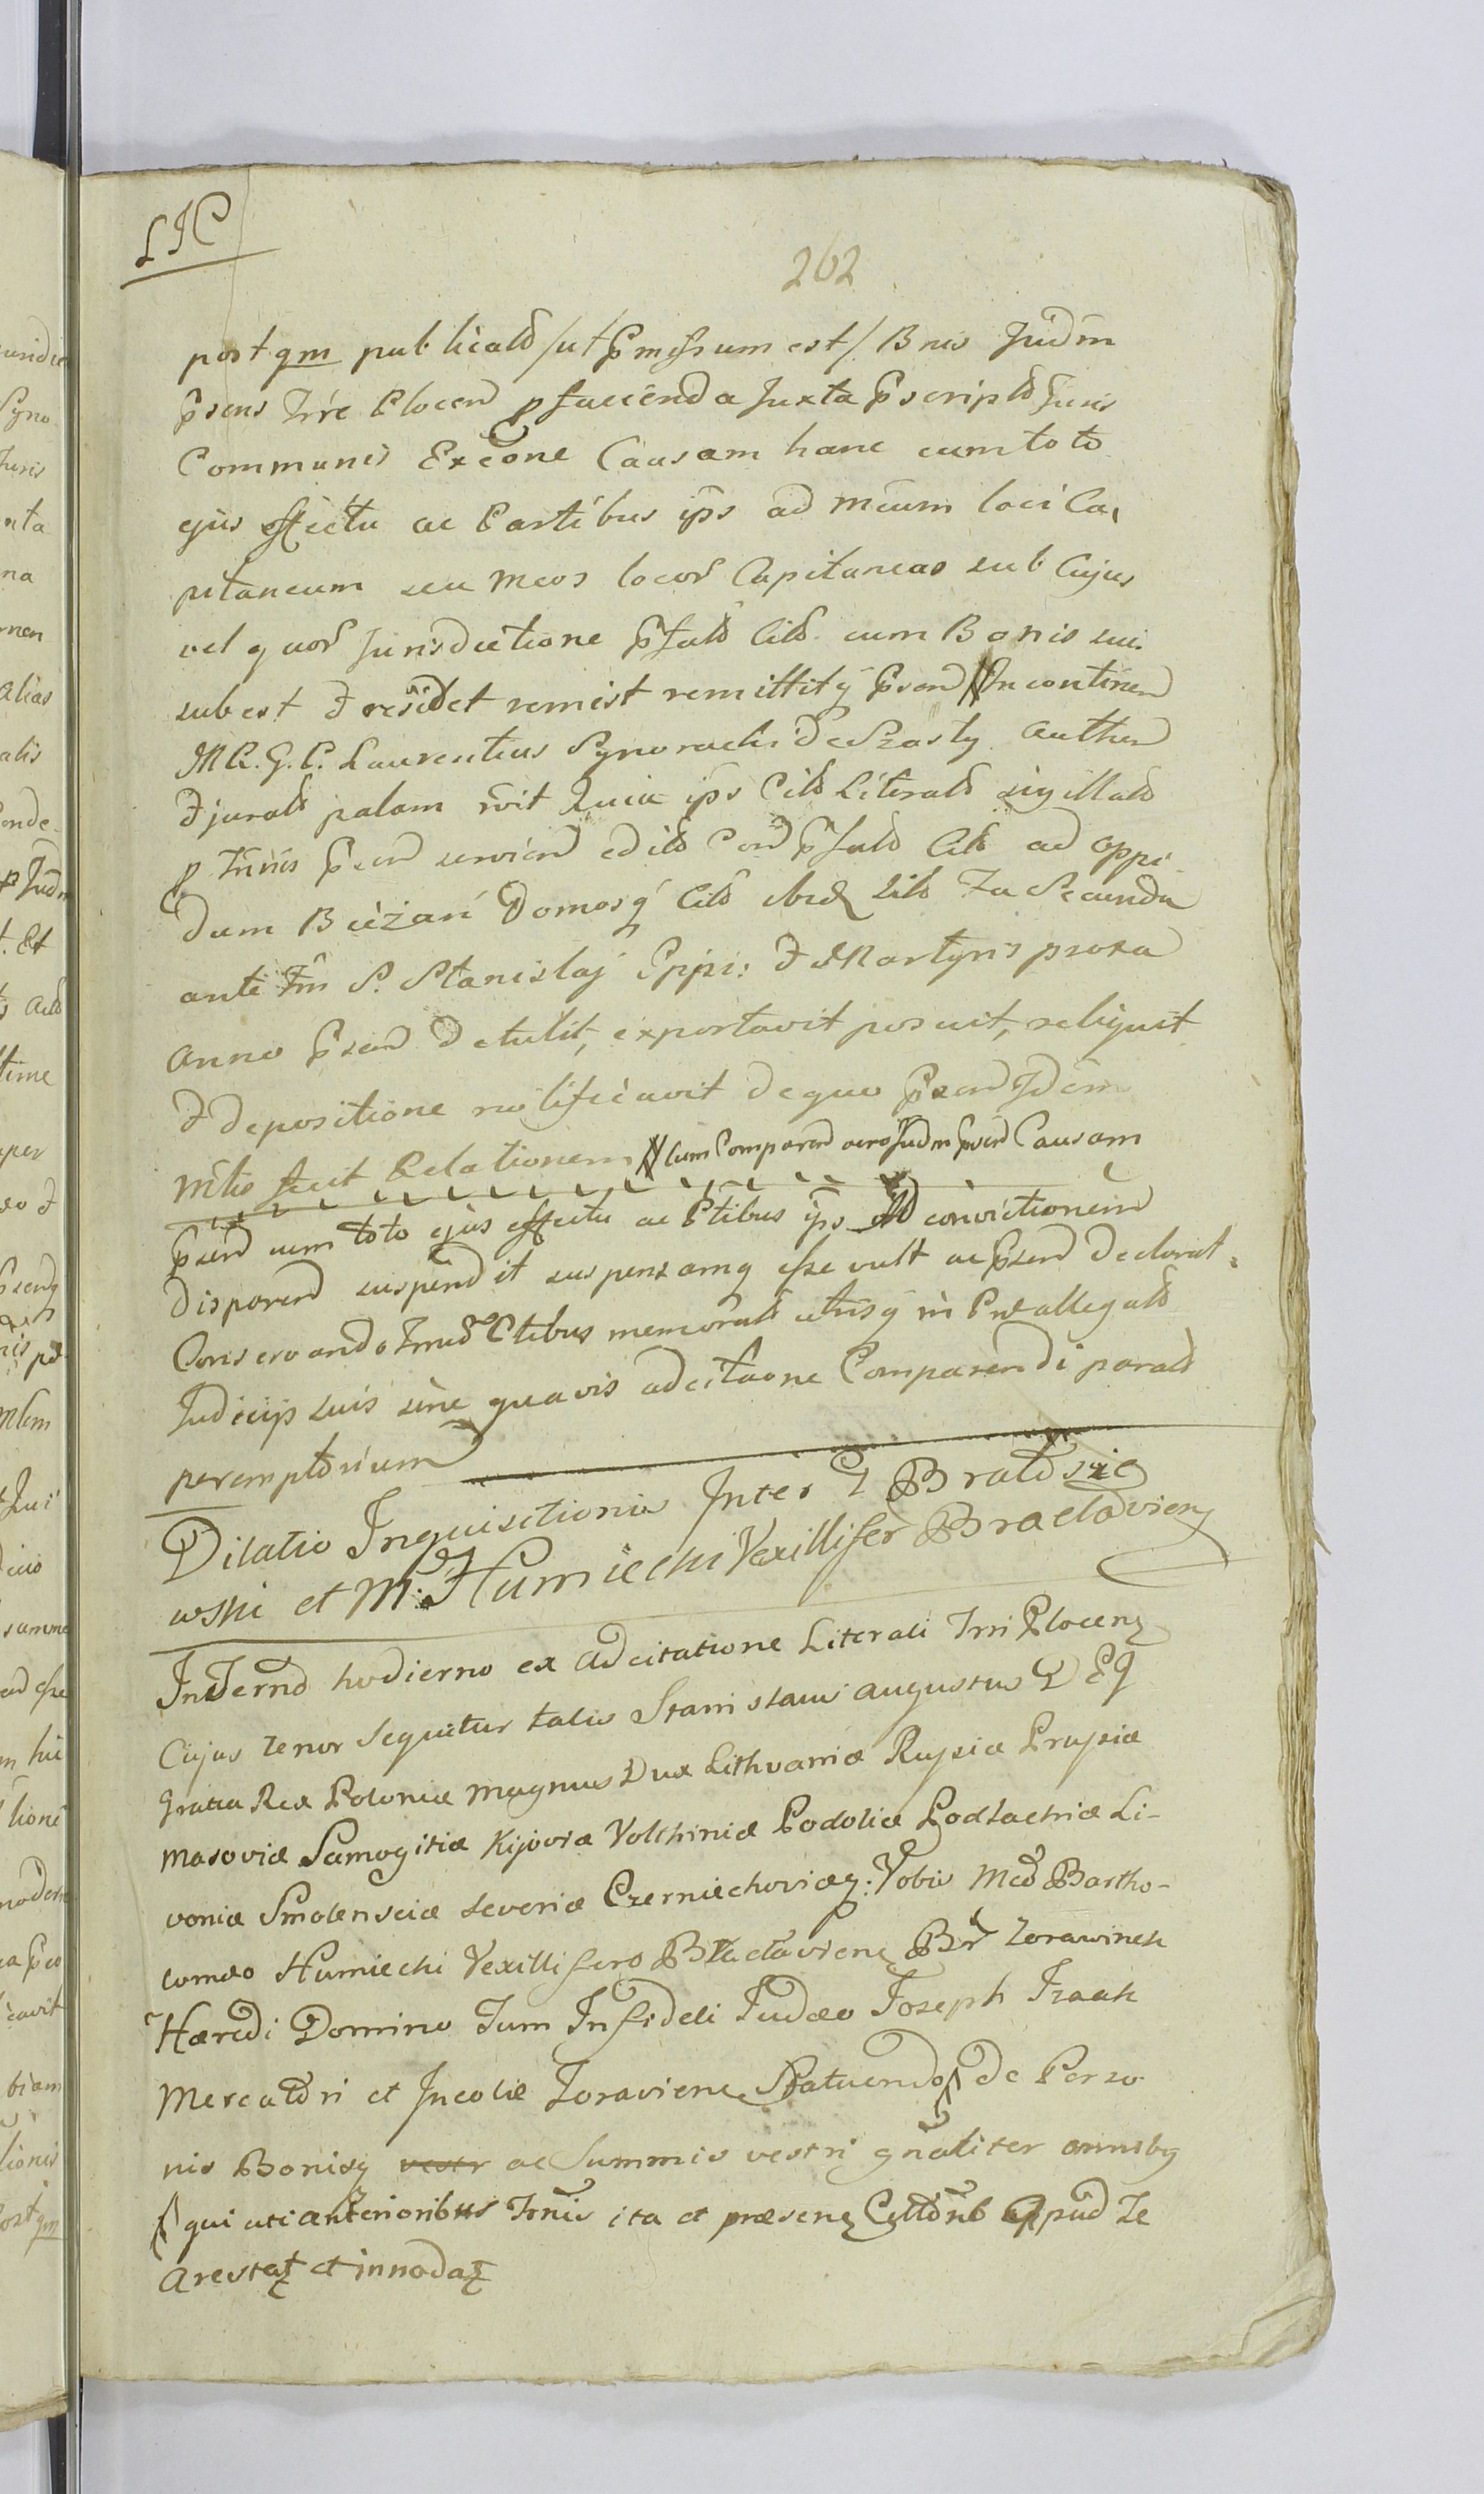 LIC
262
postqm publicatd /ut pmissum est/ Bnis Judm
psens Trre Plocen p faciendα Juxta pscriptd Juris
Communis Execone Causam hanc cum toto
ejus effectu ac Partibus ips ad meum loci Ca,
pitaneum seu meos locor Capitaneos sub Cujus
vel quor Jurisdictione pfatd Citd cum Bonis sui
subest & residet remist remittitq psend // In continen
M R. G. P. Laurentius Synoradzki de Szasty authen
& juratd palam rvit Quia ips Citd Literatd sigillatd
p Trnis psend serviend editd Con pfatd Citd ad oppi
dum Bieżań Domosq Citd ibid sitd Fa Secunda
ante Fm S. Stanislaj Eppi: & Martyris proxa
anno psend detulit, exportavit posuit, reliquit
& depositione notificavit de quo psend Idem
Mtlis fecit Relationem // Cum Comparend vero Judm psend Causam
psend cum toto ejus effectu ac Ptibus ips ad convictionem
disparend suspendit suspensamq esse vult ac psend declarat.
Conservando Trnud Ptibus memoratd utrisq in Præallegatd
Judicijs suis sine quavis adcitaone Comparendi paratd
peremptorium
Dilatio Inquisitionis Inter G Bratoszie
wski et M: Humiecki Vexillifer Braclavien
In Termd hodierno ex adcitatione Literali Trri Plocen
Cujus tenor sequitur talis Stanislaus augustus D EG
gratia Rex Poloniæ Magnus Dux Lithvaniæ Russiæ Prussiæ
Masoviæ Samogitiæ Kijoviæ Volchiniæ Podoliæ Podlachiæ Li-
voniæ Smolensciæ Severiæ Czerniechoviæq: Vobis Mcd Bartho-
lomæo Humiecki Vexillifero Braclaviene Br Zorawinek
Hæredi Domino Tum Infideli Judæo Joseph Izaak
Mercatori et Incolæ Zoraviene Statuendo // de Perso
nis Bonisq vestr ac Summis vestri gnaliter omnibq
// qui uti anterioribus Trnis ita et præsene Cittonib appud Te
arestat et innodat